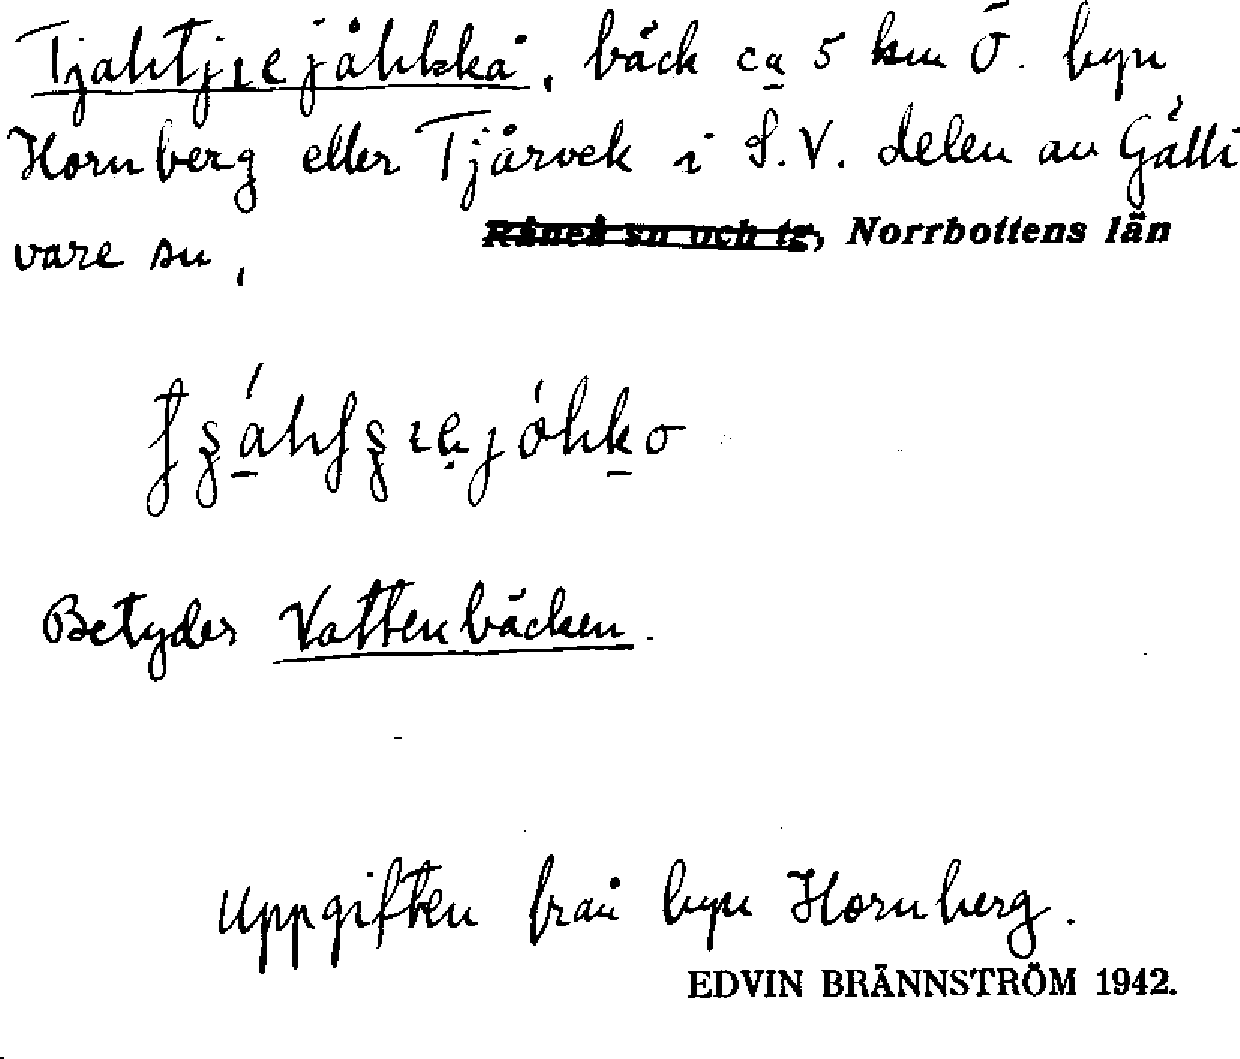 Tjahtjiejåhkkå, bäck ca 5 km Ö. byn
Hornberg eller Tjårvek i S.V. delen av Gälli
vare sn, Råneå sn och tg, Norrbottens län
Betyder Vattenbäcken.
Uppgiften från byn Hornberg.
EDVIN BRÄNNSTRÖM 1942.